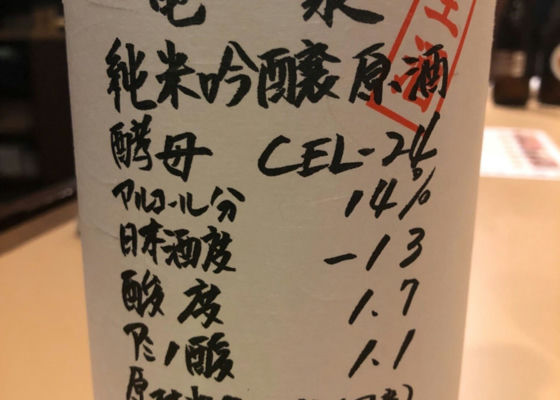 亀泉
純米吟醸原酒
酵母 CEL-24
アルコール分 14%
日本酒度 -13
酸度 1.7
アミノ酸 1.1